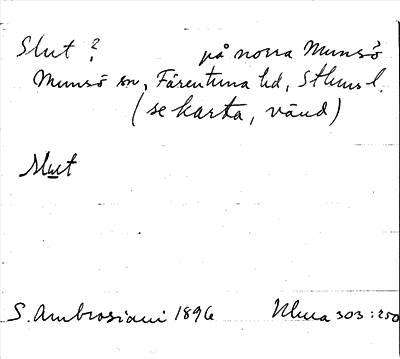 Slut? på norra Munsö
Munsö sn, Färentuna hd, Sthms l.
(se karta, vänd)
Slut
S. Ambrosiani 1896 Ulma 303:250